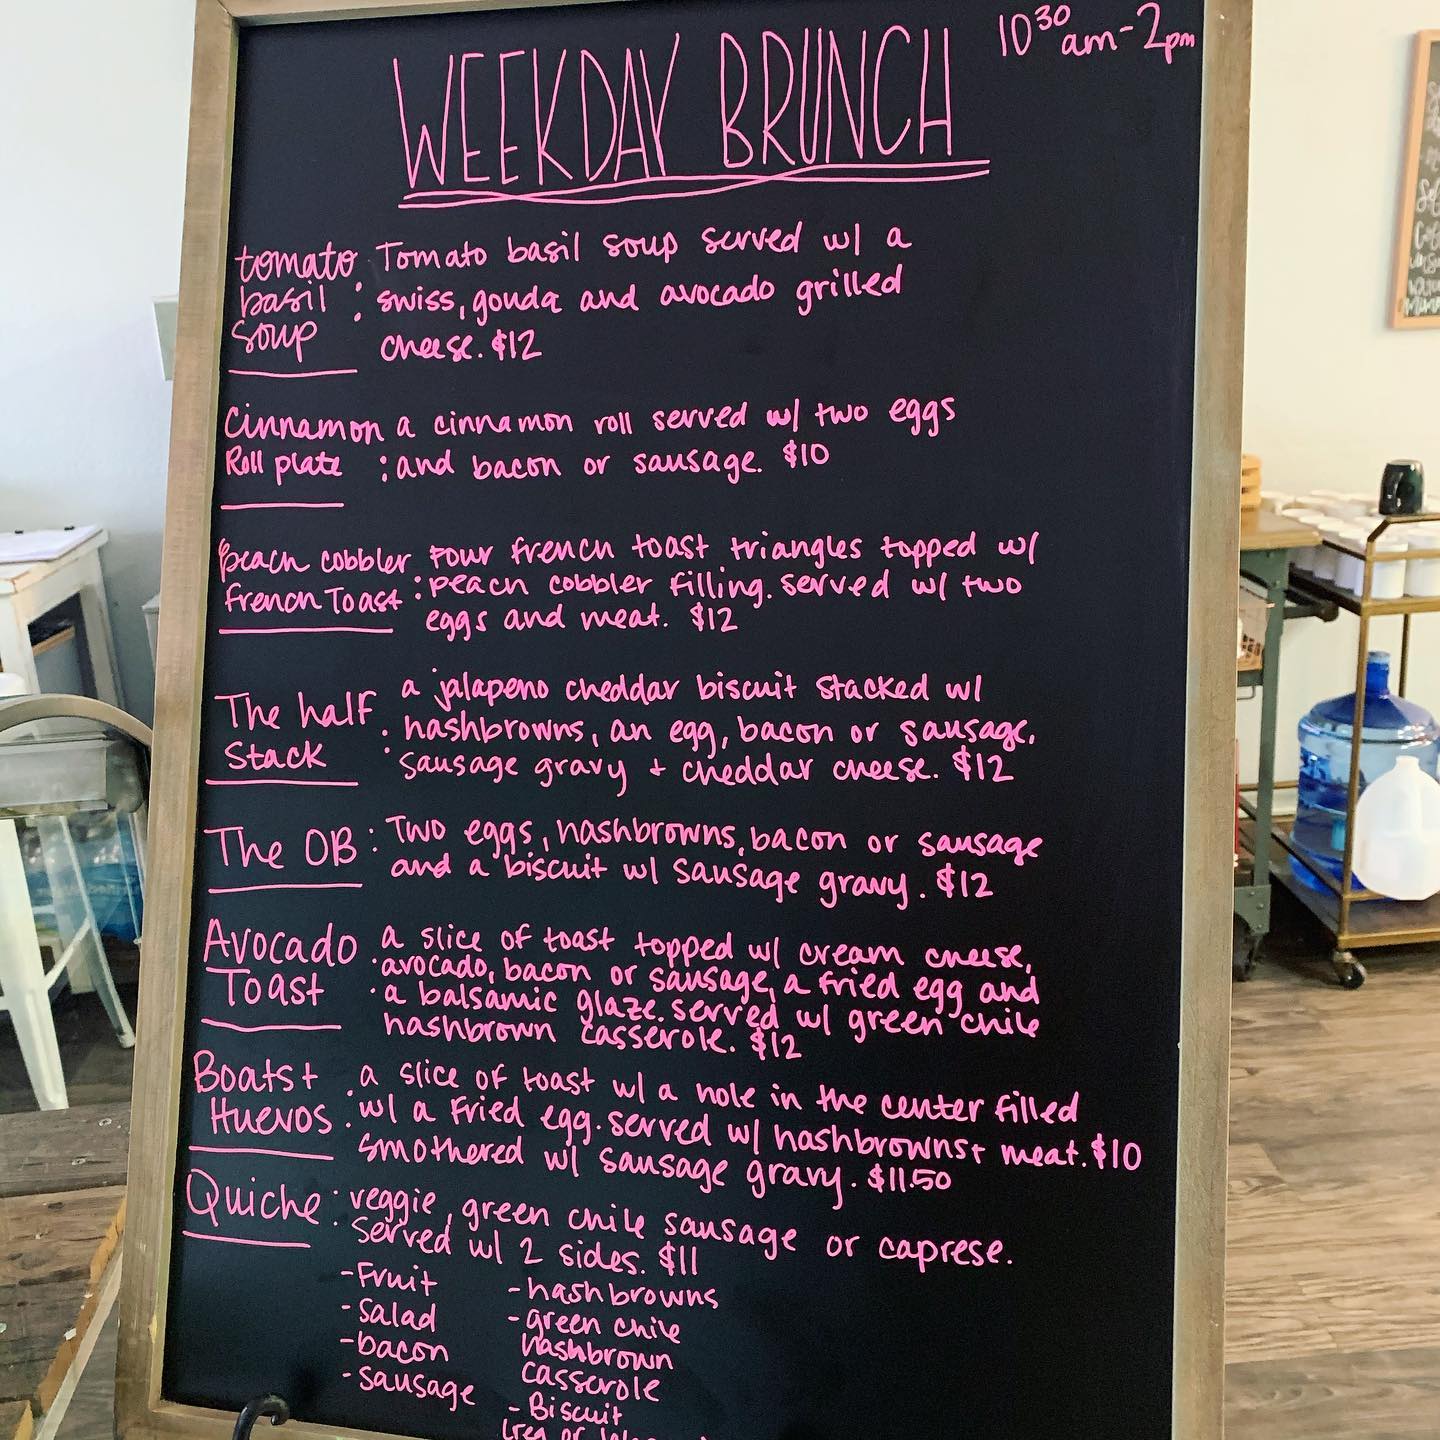 WEEKDAY BRUNCH
10³⁰ am-2pm
tomato basil soup : Tomato basil soup served w/ a
swiss, gouda and avocado grilled
cheese. $12
Cinnamon Roll plate : a cinnamon roll served w/ two eggs
and bacon or sausage. $10
peach cobbler French Toast : Four french toast triangles topped w/
peach cobbler filling. served w/ two
eggs and meat. $12
The half Stack : a jalapeno cheddar biscuit stacked w/
hashbrowns, an egg, bacon or sausage,
sausage gravy + cheddar cheese. $12
The OB : Two eggs, hashbrowns, bacon or sausage
and a biscuit w/ sausage gravy. $12
Avocado Toast : a slice of toast topped w/ cream cheese,
avocado, bacon or sausage, a fried egg and
a balsamic glaze. served w/ green chile
hashbrown casserole. $12
Boats + Huevos : a slice of toast w/ a hole in the center filled
w/ a fried egg. served w/ hashbrowns + meat. $10
smothered w/ sausage gravy. $11.50
Quiche : veggie, green chile sausage or caprese.
served w/ 2 sides. $11
-Fruit
-salad
-bacon
-sausage
-hashbrowns
-green chile
hashbrown
casserole
-Biscuit